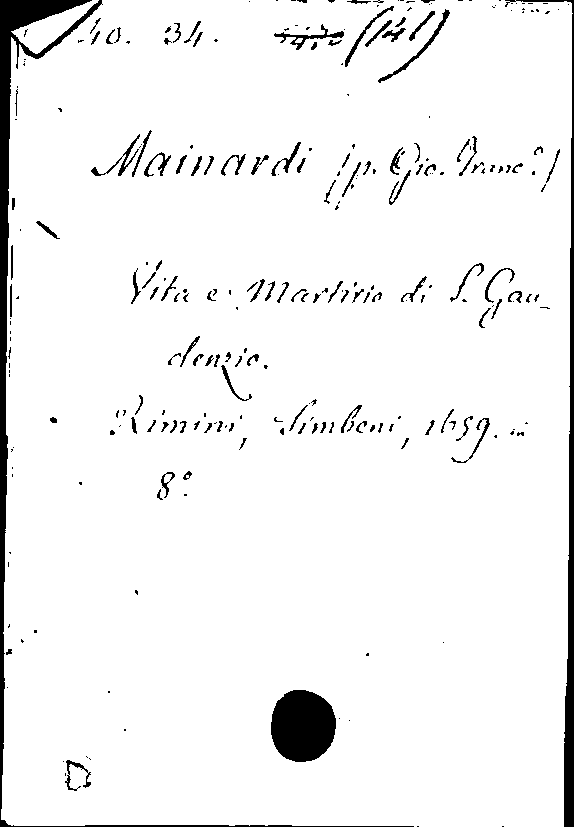 40. 34. (141)
Mainardi (p. Gio. Franc.º)
Vita e Martirio di S. Gau-
denzio.
Rimini, Simbeni, 1659. in
8.º
D